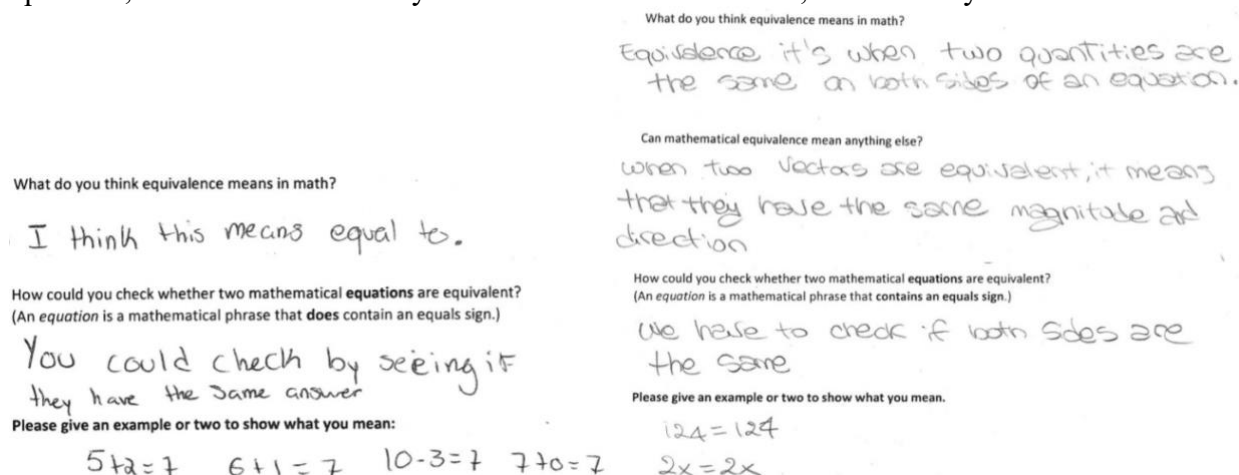 What do you think equivalence means in math?
I think this means equal to.
How could you check whether two mathematical equations are equivalent?
(An equation is a mathematical phrase that does contain an equals sign.)
You could check by seeing if
they have the same answer
Please give an example or two to show what you mean:
5+2=7 6+1=7 10-3=7 7+0=7
What do you think equivalence means in math?
Equivalence it's when two quantities are
the same on both sides of an equation.
Can mathematical equivalence mean anything else?
when two vectors are equivalent, it means
that they have the same magnitude and
direction
How could you check whether two mathematical equations are equivalent?
(An equation is a mathematical phrase that contains an equals sign.)
we have to check if both sides are
the same
Please give an example or two to show what you mean.
124=124
2x=2x